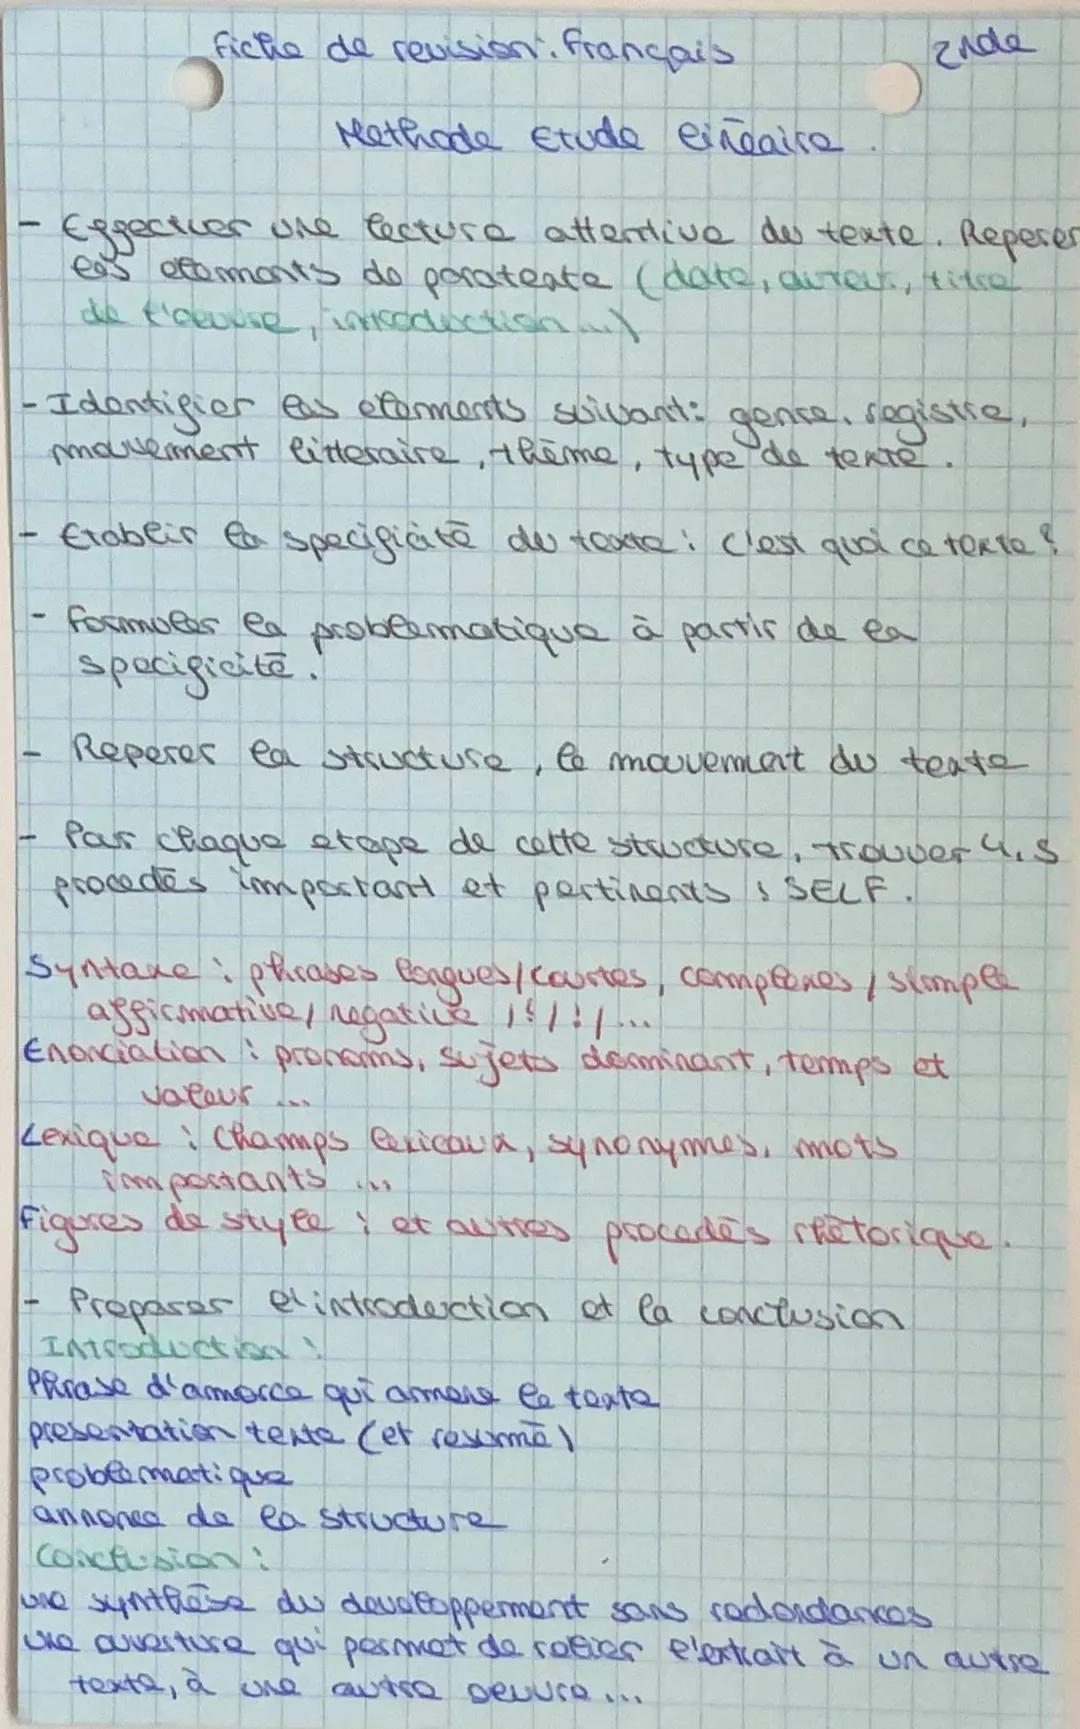 Fiche de revision: Français 2nde
Methode Etude linéaire.
- Effectuer une lecture attentive du texte. Reperer
les elements de paratexte (date, auteur, titre
de l'oeuvre, introduction...)
- Identifier les elements suivant: genre, registre,
mouvement litteraire, thème, type de texte.
- Etablir la specificité du texte: c'est quoi ce texte?
- Formuler la problematique à partir de la
specificité.
- Reperer la structure, le mouvement du texte
- Par chaque etape de cette structure, trouver 4,5
procedés important et pertinents: SELF.
Syntaxe: phrases longues/courtes, complexes/simple
affirmative/negative /?/!/...
Enonciation: pronoms, sujets dominant, temps et
valeur...
Lexique: Champs lexicaux, synonymes, mots
importants...
Figures de style: et autres procedés rhétorique.
- Preparer l'introduction et la conclusion
Introduction:
Phrase d'amorce qui amene le texte
presentation texte (et resumé)
problematique
annonce de la structure
Conclusion:
une synthèse du developpement sans redondances
une ouverture qui permet de relier l'extrait à un autre
texte, à une autre oeuvre...